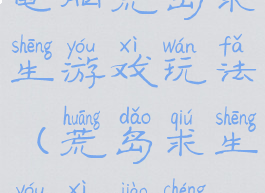 电脑荒岛求
shēng yóu xì wán fǎ
生游戏玩法
huāng dǎo qiú shēng
(荒岛求生
yóu xì jiào chéng